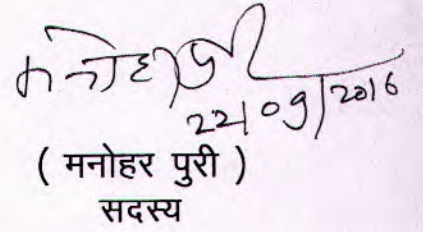 मनोहर पुरी
22/09/2016
( मनोहर पुरी )
सदस्य